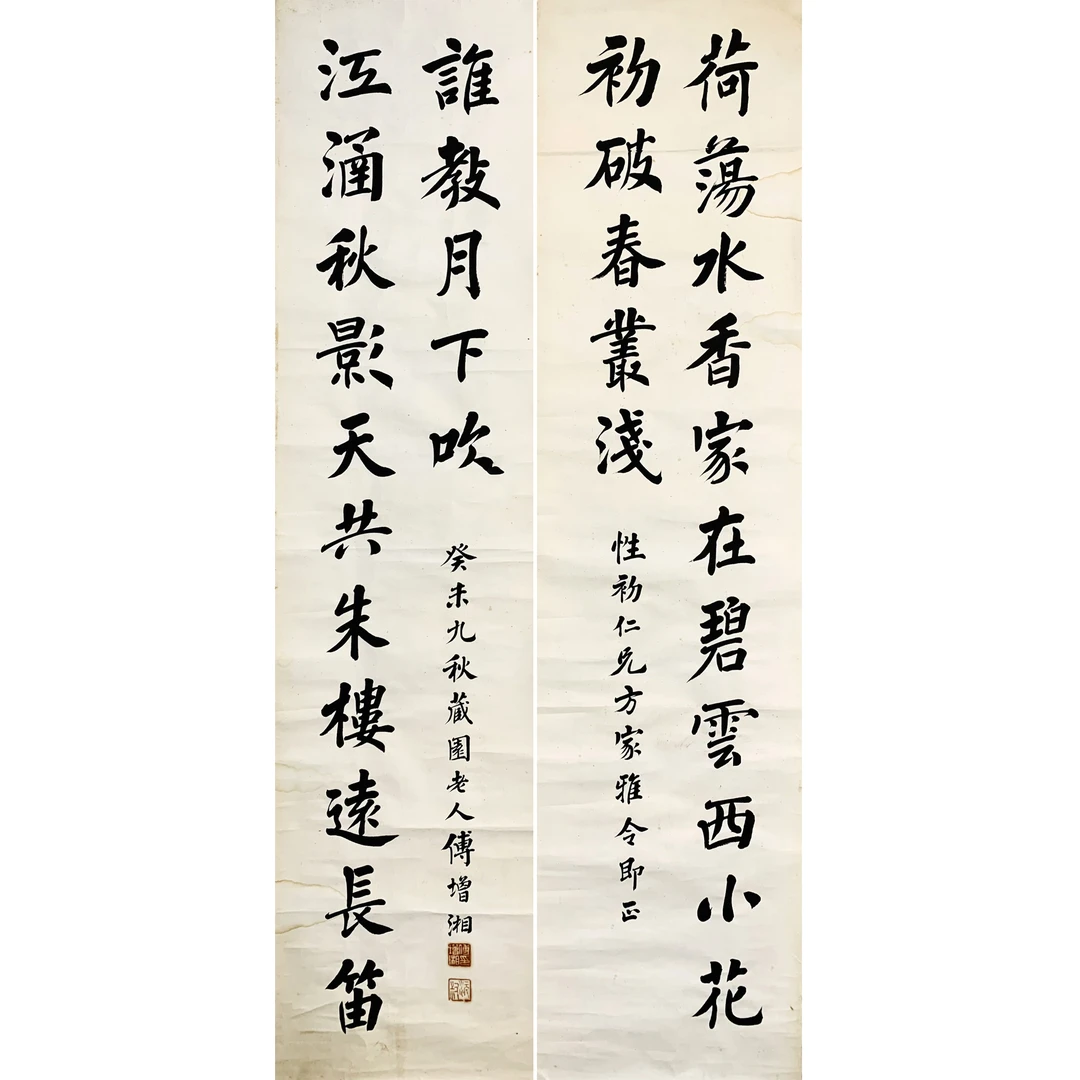 荷蕩水香家在碧雲西小花
初破春叢淺
性初仁兄方家雅令即正
江涵秋影天共朱樓遠長笛
誰教月下吹
癸未九秋藏園老人傅增湘